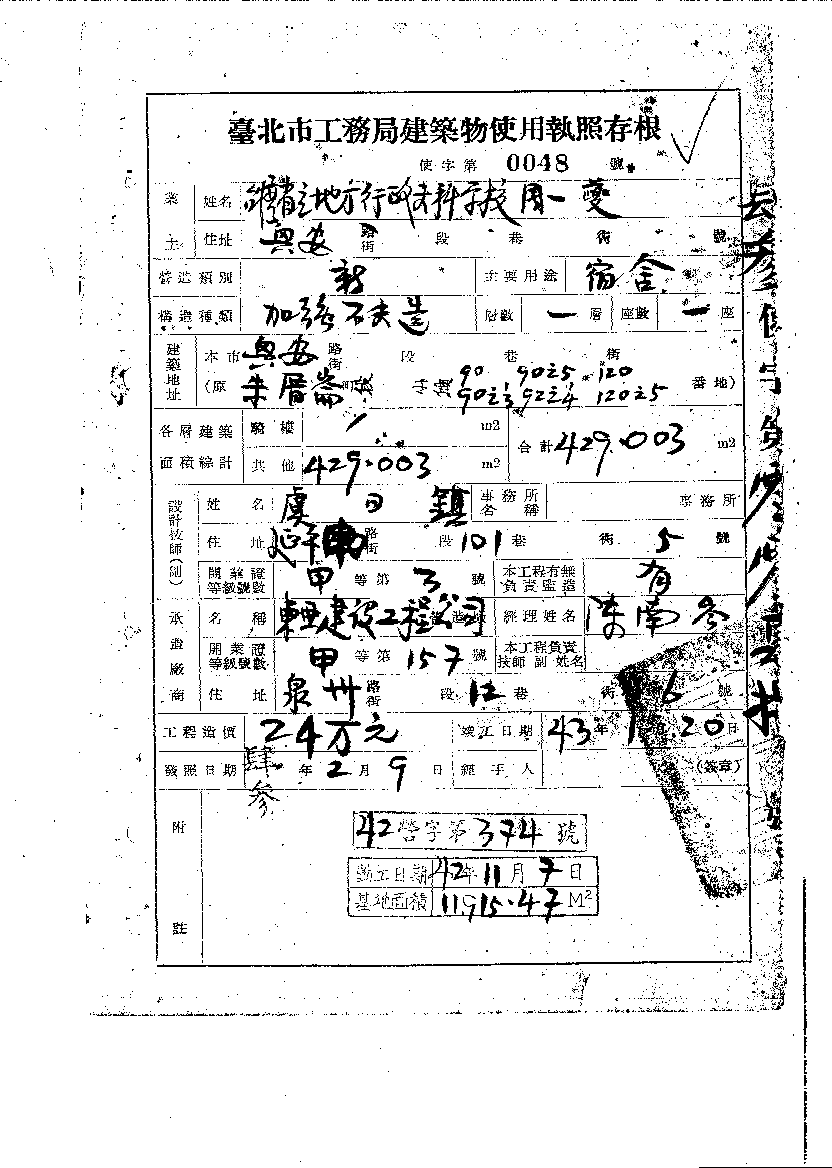 臺北市工務局建築物使用執照存根
使字第 0048 號
業主 姓名 省立地方行政專科學校 周一夔
住址 興安 路街 段 巷 衖 號
營造類別 新 主要用途 宿舍
構造種類 加強磚造 層數 一 層 座數 一 座
建築地址 本市 興安 路街 段 巷 衖
(原 朱厝崙 町 字 90 90之5 120 番地)
90之3 92之4 120之5
各層建築面積總計 騎樓 / m2 合計 429.003 m2
其他 429.003 m2
設計技師(副) 姓名 虞曰鎮 事務所名稱 事務所
住址 延平南 路街 段 101 巷 衖 5 號
開業證等級號數 甲 等第 3 號 本工程有無負責監造 有
承造廠商 名稱 東亞建設工程公司 經理姓名 陳南參
開業證等級號數 甲 等第 157 號 本工程負責技師副姓名
住址 泉州 路街 段 12 巷 衖 6 號
工程造價 24万元 竣工日期 43年1月20日
發照日期 肆參年2月9日 經手人 (簽章)
附註
42營字第374號
動工日期 42年11月7日
基地面積 11915.47 M²